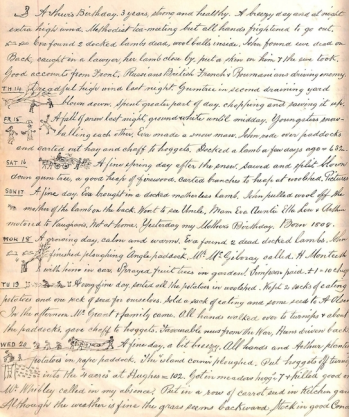 Arthur's Birthday. 3 years, strong and healthy. A breezy day and at night
extra high wind. Methodist tea-meeting but all hands frightened to go out.
Eva found 2 docked lambs dead, wool balls inside. John found ewe dead on
Back, caught in a lawyer, her lamb close by, put a skin on him & the ewe took.
Good accounts from Front. Russians British French & Roumanians driving enemy.
TH 14 Dreadful high wind last night. Gumtree in second draining yard
blown down. Spent greater part of day chopping and sawing it up.
FRI 15 A fall of snow last night ground white until midday. Youngsters snow-
balling each other, Eva made a snow man, John rode over paddocks
and carted out hay and chaff to hoggets. Docked a lamb a few days ago = 632
SAT 16 A fine spring day after the snow. Sawed and split blown
down gum tree, a good heap of firewood. Carted branches to heap at woolshed.
SON 17 A fine day. Eva brought in a docked motherless lamb. John pulled wool off the
mother of the lamb on the back. Went to see Uncle, Mum Eva Auntie Ella Ken & Arthur
motored to. Not at home. Yesterday my Mothers Birthday. Born 1808.
MON 18 A growing day, calm and warm. Eva found 2 dead docked lambs.
finished ploughing paddock. Mr Mrs Gilroy called. H Monteith
with him in car. Sprayed fruit trees in garden.
TU 19 A fine day, sorted all the potatoes in woolshed. Kept 2 sacks of eating
potatoes and one sack of seed for ourselves. Sold a sack of eating and some seeds to
In the afternoon Mr Grant & family came. All hands walked over to turnips & about
the paddocks gave chaff to hoggets. Favourable news from the War, Huns driven back
WED 20 A fine day, a bit breezy. All hands and Arthur planted
potatoes in rape paddock. The island ploughed. Put hoggets of turnips
into the = 102. Got in meadow hay & pulled good
Mr called in my absence. Put in a row of carrot seed in Kitchen garden
Although the weather is fine the grass seems backward. Stock in good